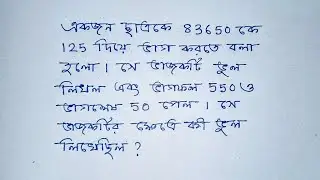 একজন ছাত্রকে 83650 কে
125 দিয়ে ভাগ করতে বলা
হলো। সে ভাজকটি ভুল
লিখল এবং ভাগফল 550 ও
ভাগশেষ 50 পেল। সে
ভাজকটির ক্ষেত্রে কী ভুল
লিখেছিল?